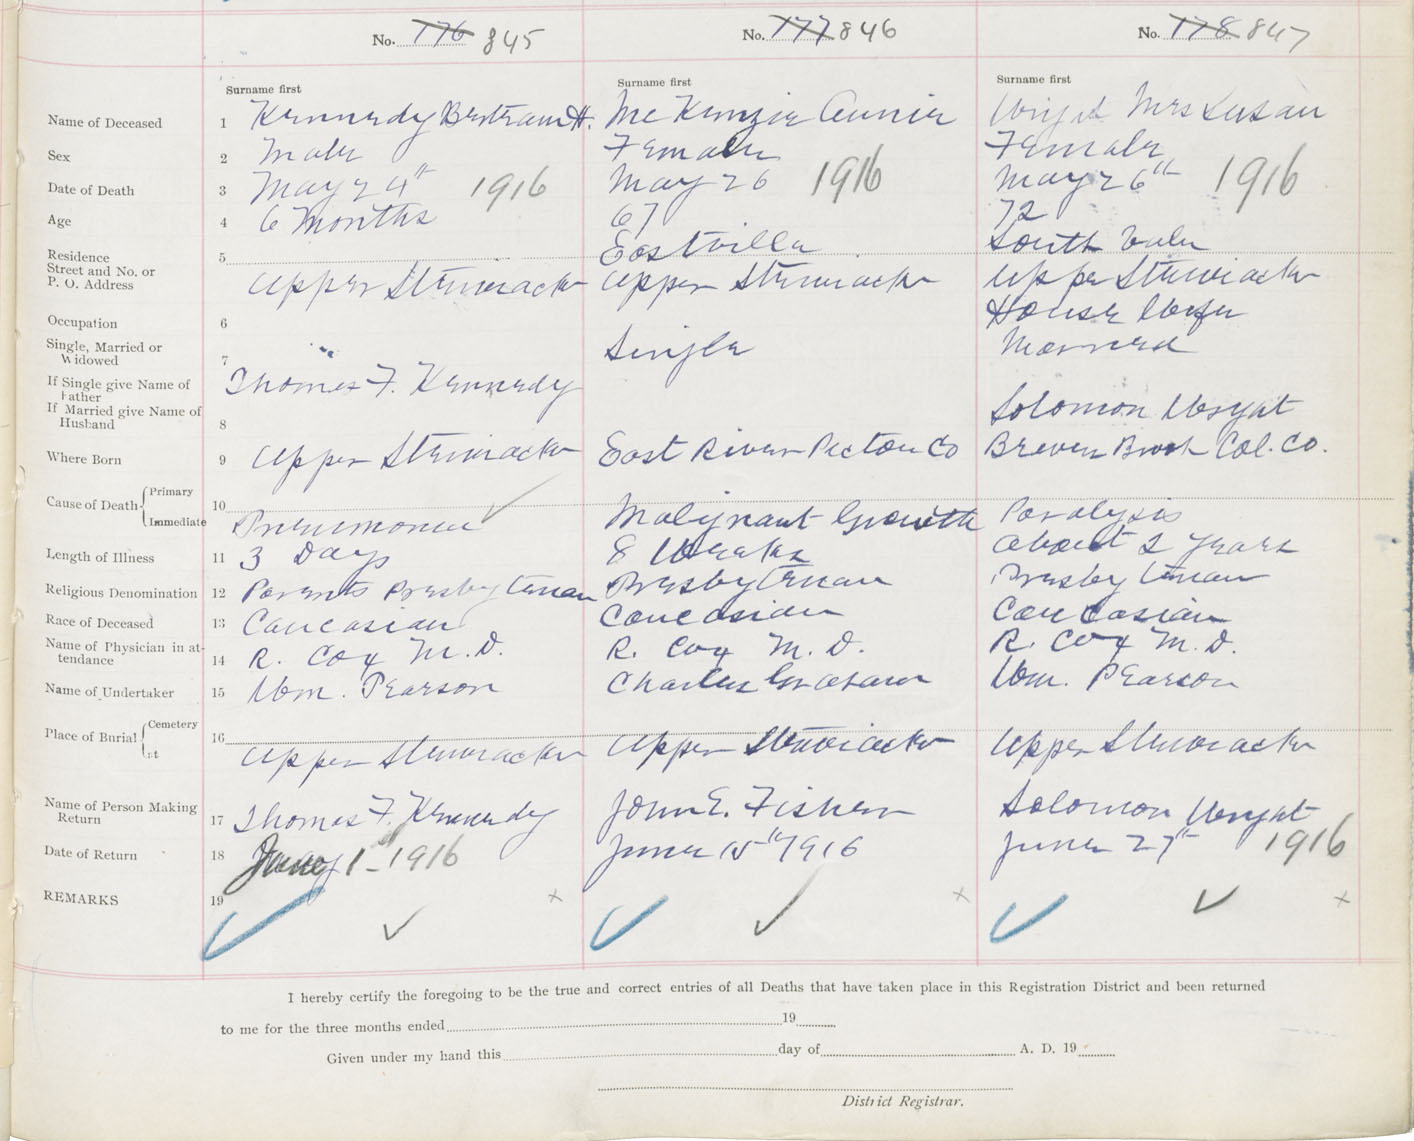 No. 776 845
No. 777 846
No. 778 847
Surname first
Surname first
Surname first
Name of Deceased 1 Kennedy Bertram H. McKenzie Annie Wright Mrs Susan
Sex 2 Male Female Female
Date of Death 3 May 24th 1916 May 26 1916 May 26th 1916
Age 4 6 months 67 72
Residence 5 Eastville South Vale
Street and No. or
P. O. Address Upper Stewiacke Upper Stewiacke Upper Stewiacke
Occupation 6 House Wife
Single, Married or
Widowed 7 Single Married
If Single give Name of
Father Thomas F. Kennedy
If Married give Name of
Husband 8 Solomon Wright
Where Born 9 Upper Stewiacke East River Pictou Co Brook Col. Co.
Cause of Death Primary 10
Immediate Pneumonia Malignant Growth Paralysis
Length of Illness 11 3 Days 8 Weeks about 2 years
Religious Denomination 12 Parents Presbyterian Presbyterian Presbyterian
Race of Deceased 13 Caucasian Caucasian Caucasian
Name of Physician in at-
tendance 14 R. Cox M.D. R. Cox M.D. R. Cox M.D.
Name of Undertaker 15 Wm. Pearson Charles Graham Wm. Pearson
Place of Burial Cemetery 16
at Upper Stewiacke Upper Stewiacke Upper Stewiacke
Name of Person Making
Return 17 Thomas F. Kennedy John E. Fisher Solomon Wright
Date of Return 18 June 1 - 1916 June 15th 1916 June 27th 1916
REMARKS 19
I hereby certify the foregoing to be the true and correct entries of all Deaths that have taken place in this Registration District and been returned
to me for the three months ended 19
Given under my hand this day of A. D. 19
District Registrar.